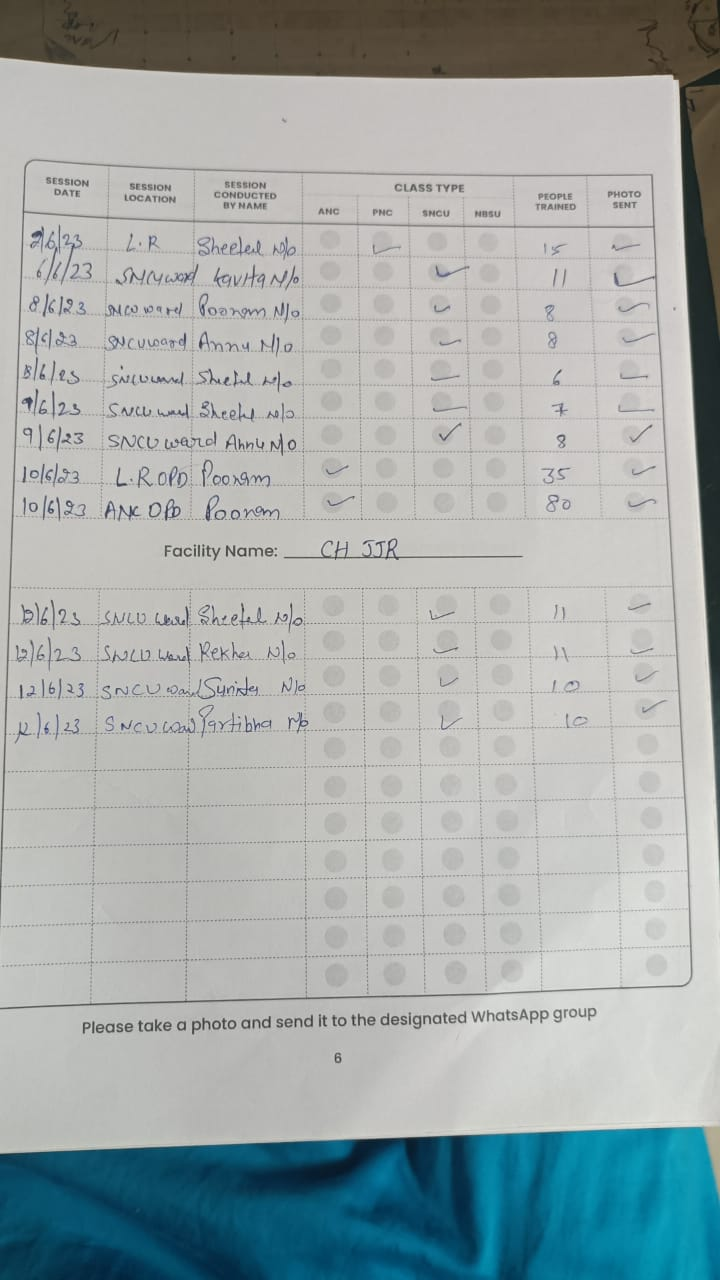 SESSION DATE SESSION LOCATION SESSION CONDUCTED BY NAME CLASS TYPE PEOPLE TRAINED PHOTO SENT
ANC PNC SNCU NBSU
2/6/23 L.R Sheetel N/o ✓ 15 ✓
6/6/23 SNCU ward Kavita N/o ✓ 11 ✓
8/6/23 SNCU ward Poonam N/o ✓ 8 ✓
8/6/23 SNCU ward Annu N/o ✓ 8 ✓
8/6/23 SNCU ward Sheetel N/o ✓ 6 ✓
9/6/23 SNCU ward Sheetel N/o ✓ 7 ✓
9/6/23 SNCU ward Annu N/O ✓ 8 ✓
10/6/23 L.R OPD Poonam ✓ 35 ✓
10/6/23 ANC OPD Poonam ✓ 80 ✓
Facility Name: CH JJR
12/6/23 SNCU ward Sheetel N/o ✓ 11 ✓
12/6/23 SNCU ward Rekha N/o ✓ 11 ✓
12/6/23 SNCU ward N/o ✓ 10 ✓
12/6/23 SNCU ward Partibha N/o ✓ 10 ✓
Please take a photo and send it to the designated WhatsApp group
6